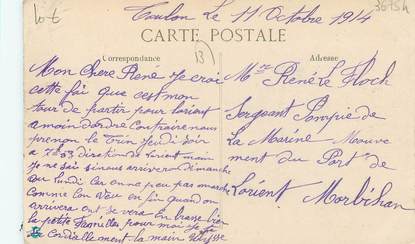 lot
3675h
Toulon Le 11 Octobre 1914
CARTE POSTALE
Correspondance
Adresse
13
Mon Chere René je croi
cette foi que c'est mon
tour de partir pour Lorient
a moin d'ordre Contraire nous
prenon le Train Jeudi Soir
a direction de Lorient mais
Je ne sai si nous arriveron dimanche
Ou lundi Car on na peu pas marché
Comme l'on veu en fin quand on
arrivera ont se vera en brasse bien
la petite famille pour moi
Cordiallement la main
Mr René Le Floch
Sergeant Pompie de
La Marine Mouve
ment du Port de
Lorient Morbihan